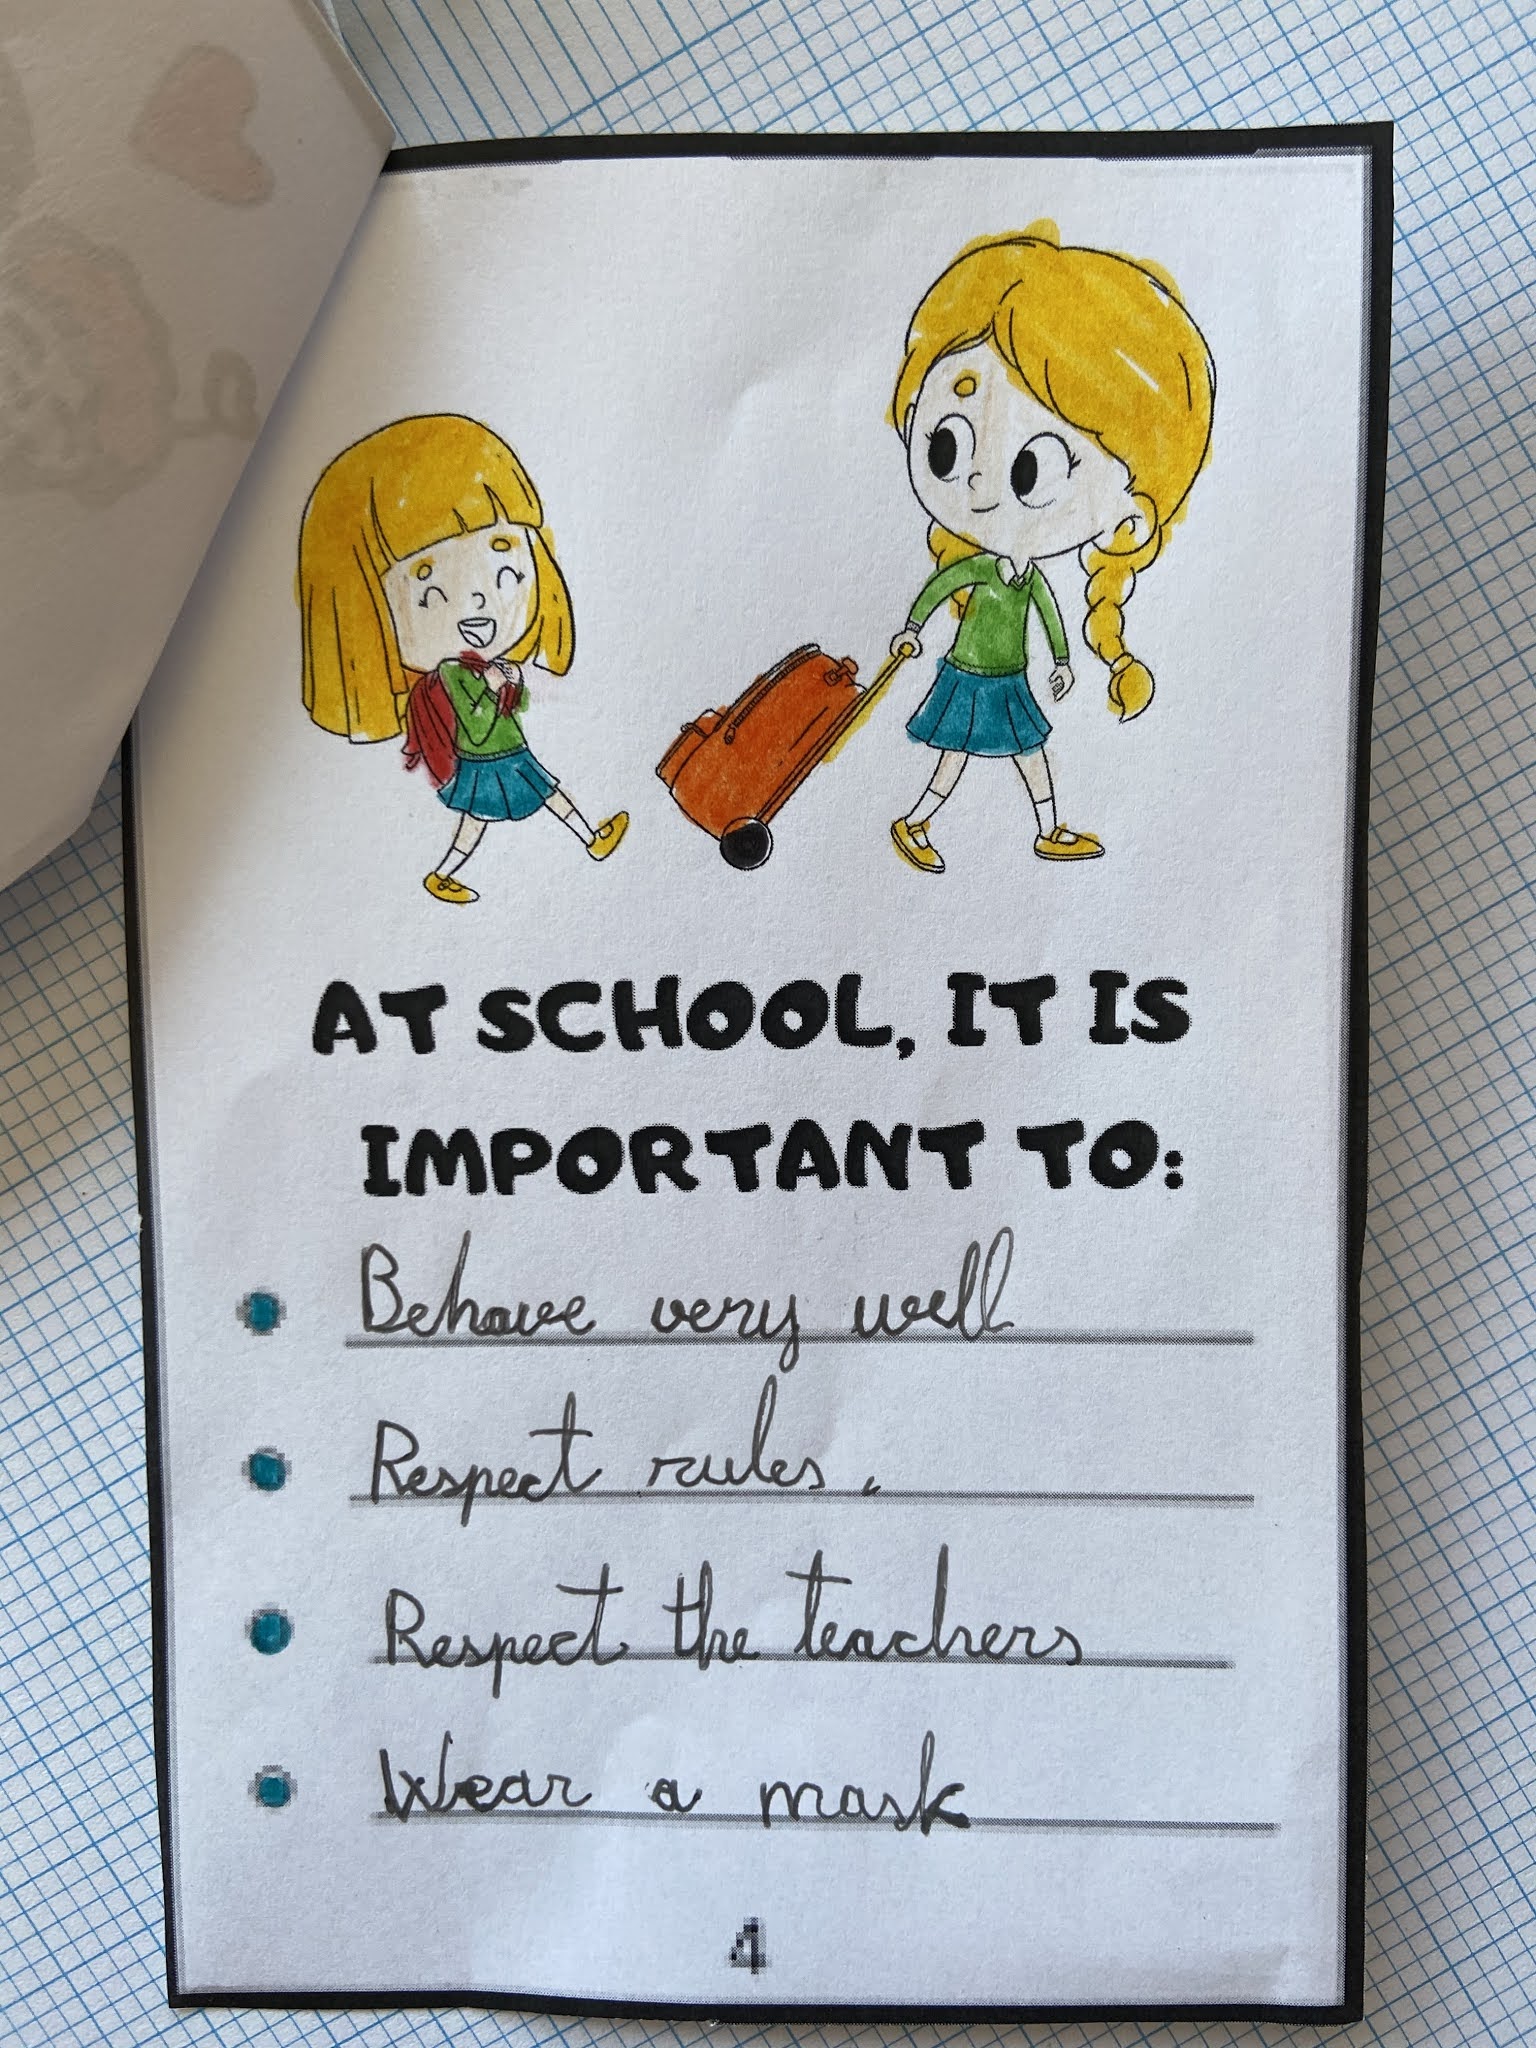 AT SCHOOL, IT IS
IMPORTANT TO:
Behave very well
Respect rules.
Respect the teachers
Wear a mask
4